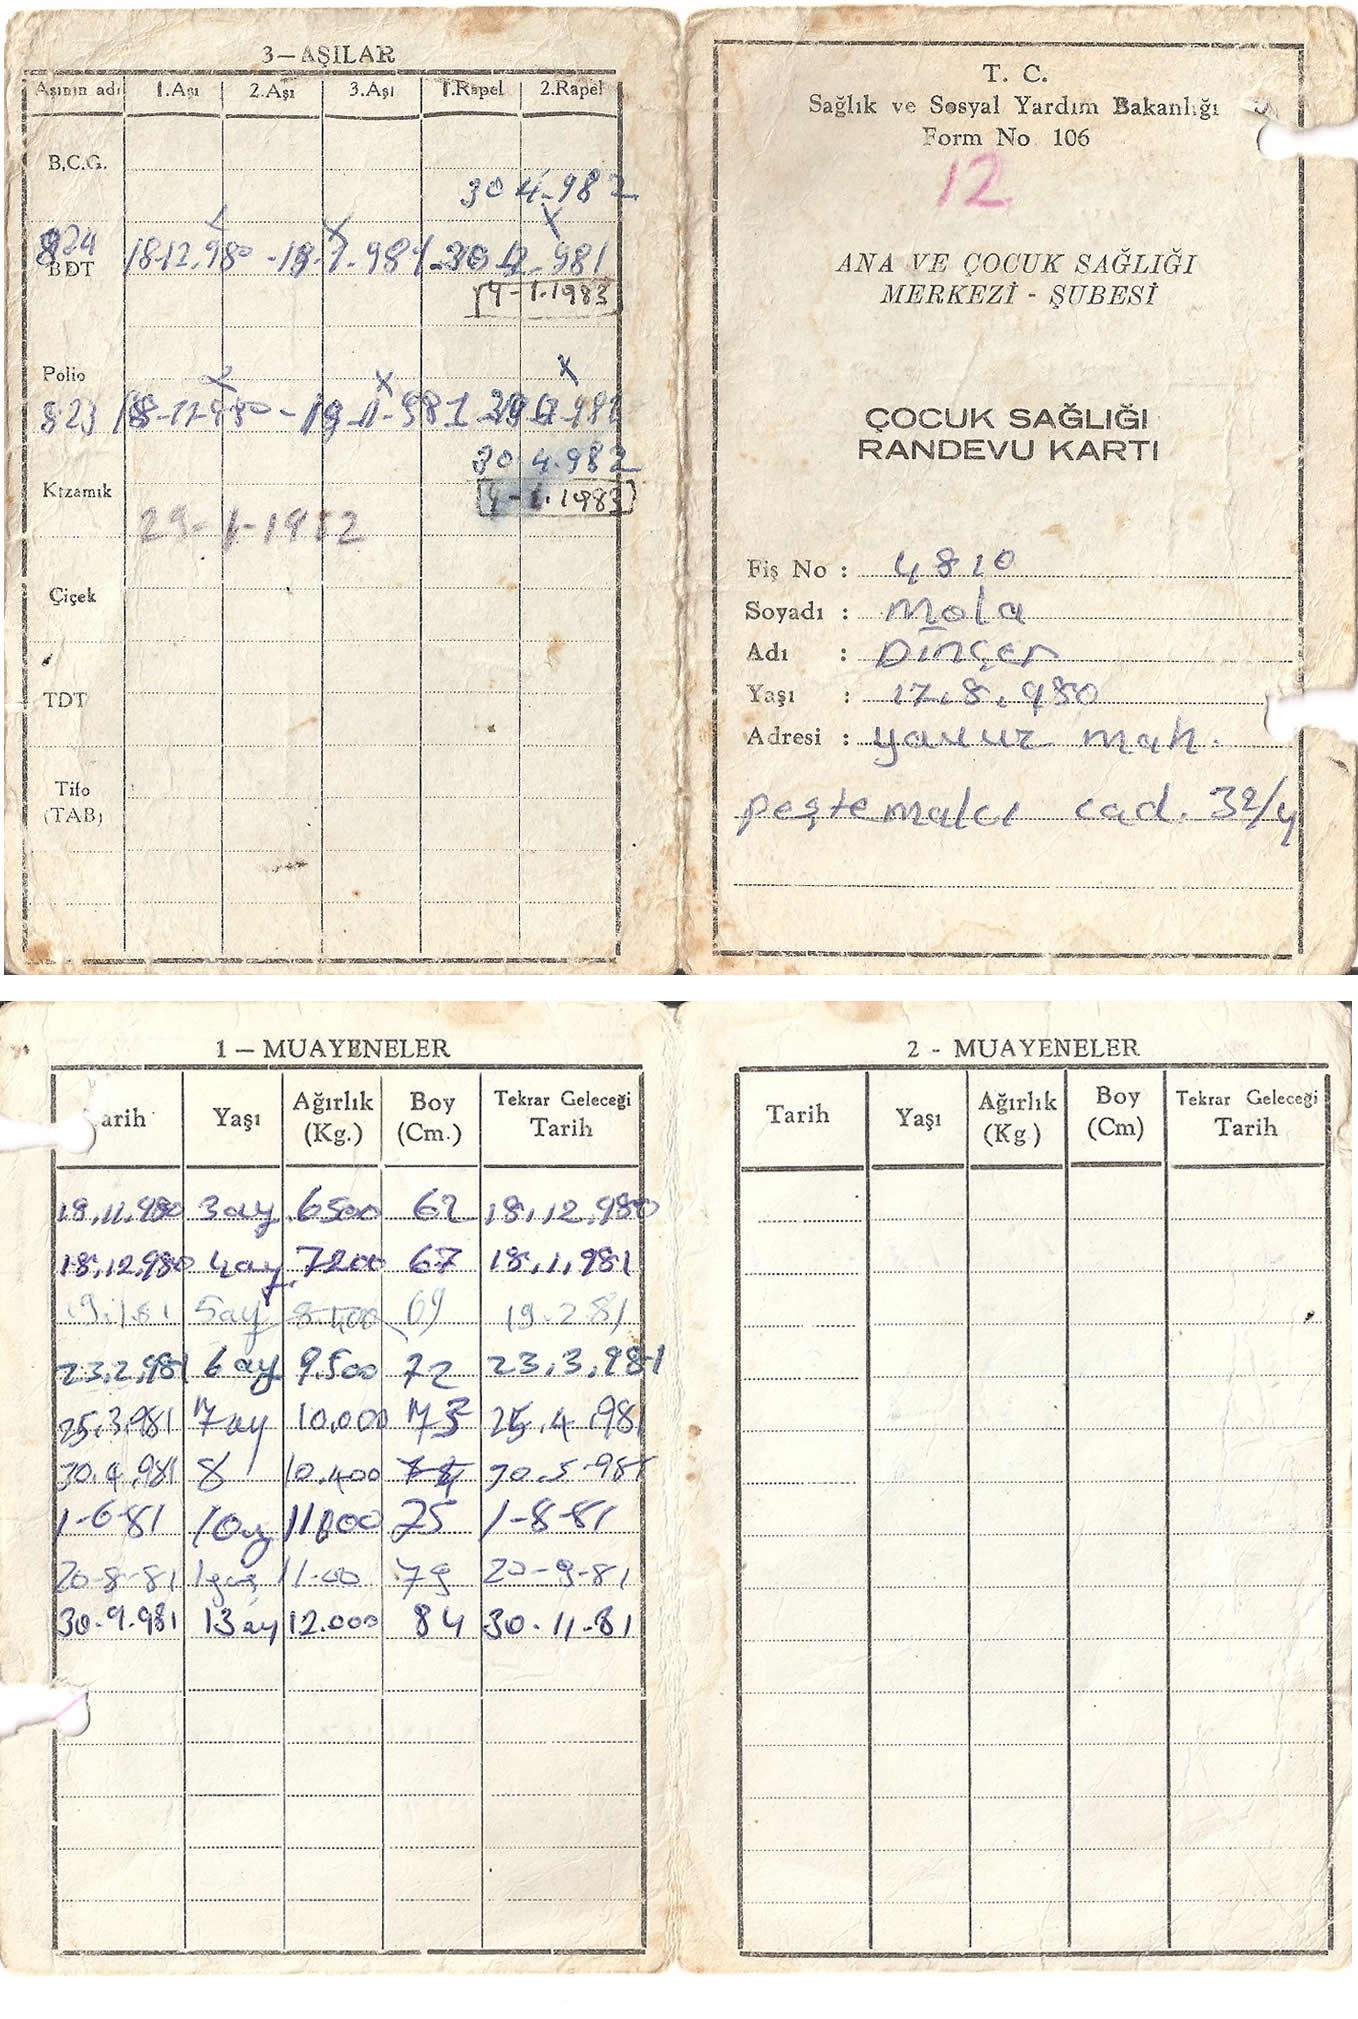 3-AŞILAR
Aşının adı 1.Aşı 2.Aşı 3.Aşı 1.Rapel 2.Rapel
B.C.G.
30 4-982
824
BDT 18-12.980
14-1.1983
Polio
823
30.4.982
Kızamık
4-1.1983
29-1-1982
Çiçek
TDT
Tifo
(TAB)
T. C.
Sağlık ve Sosyal Yardım Bakanlığı
Form No 106
12
ANA VE ÇOCUK SAĞLIĞI
MERKEZİ - ŞUBESİ
ÇOCUK SAĞLIĞI
RANDEVU KARTI
Fiş No : 4810
Soyadı : Mola
Adı : Dinçer
Yaşı : 17.8.980
Adresi : yavuz mah.
peştemalcı cad. 32/4
1 – MUAYENELER
arih Yaşı Ağırlık (Kg.) Boy (Cm.) Tekrar Geleceği Tarih
18.11.980 3 ay 6500 62 18.12.980
18.12.980 4 ay 7200 67 18.1.981
19.1.81 5ay 8.400 69 19.2.81
23.2.981 6 ay 9.500 72 23.3.981
25.3.981 7 ay 10.000 73 25.4.981
30.4.981 8 10.400 30.5.981
1-6-81 10ay 75 1-8-81
20-8-81 1 11.00 79 20-9-81
30.9.981 13 ay 12.000 84 30.11.81
2 - MUAYENELER
Tarih Yaşı Ağırlık (Kg) Boy (Cm) Tekrar Geleceği Tarih